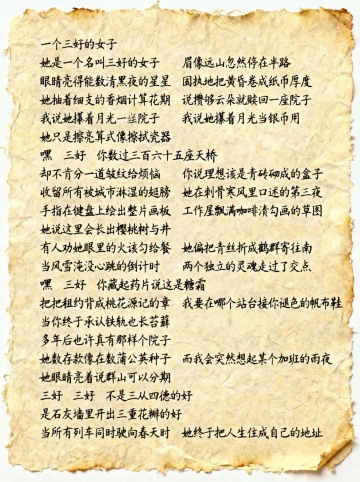 一个三好的女子
她是一个名叫三好的女子　眉像远山忽然停在半路
眼睛亮得能数清黑夜的星星　固执地把黄昏卷成纸币厚度
她抽着细支的香烟计算花期　说攒够云朵就赎回一座院子
我说她攥着月光一丝院子　我说她攥着月光当银币用
她只是擦亮算式像擦拭瓷器
嘿　三好　你数过三百六十五座天桥
却不肯分一道皱纹给烦恼　你说理想该是青砖砌成的盒子
收留所有被城市淋湿的翅膀　她在刺骨寒风里口述的第三夜
手指在键盘上绘出整片画板　工作屋飘满咖啡渍勾画的草图
她说这里会长出樱桃树与井
有人劝她眼里的火该匀给餐　她偏把青丝折成鹤群寄往南
当风雪淹没心跳的倒计时　两个独立的灵魂走过了交点
嘿　三好　你藏起药片说这是糖霜
把把租约背成桃花源记的章　我要在哪个站台接你褪色的帆布鞋
当你终于承认铁轨也长苔藓
多年后也许真有那样个院子
她数存款像在数蒲公英种子　而我会突然想起某个加班的雨夜
她眼睛亮着说群山可以分期
三好　三好　不是三从四德的好
是石灰墙里开出三重花瓣的好
当所有列车同时驶向春天时　她终于把人生住成自己的地址